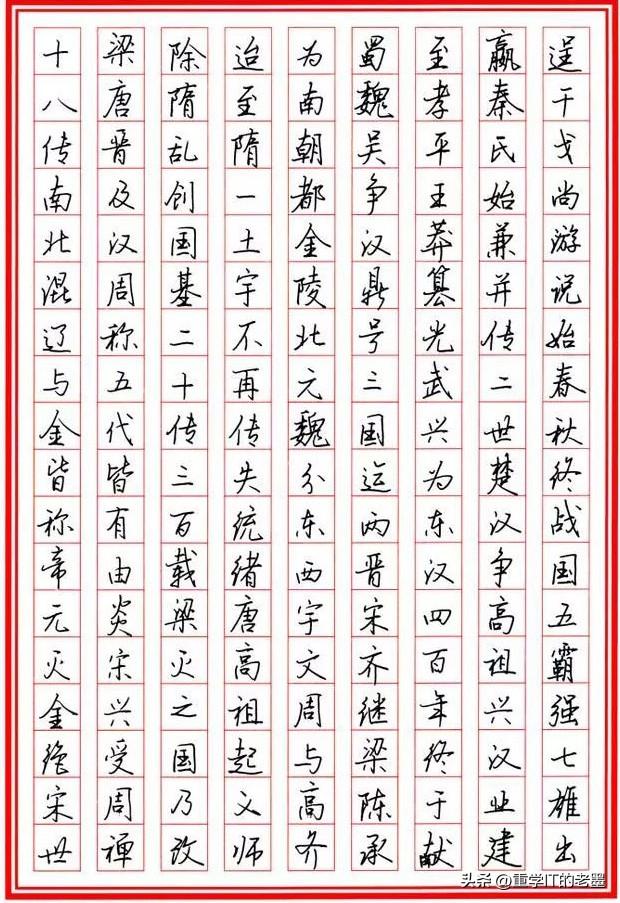 逞干戈尚游说始春秋终战国五霸强七雄出
嬴秦氏始兼并传二世楚汉争高祖兴汉业建
至孝平王莽篡光武兴为东汉四百年终于献
蜀魏吴争汉鼎号三国迄两晋宋齐继梁陈承
为南朝都金陵北元魏分东西宇文周与高齐
迨至隋一土宇不再传失统绪唐高祖起义师
除隋乱创国基二十传三百载梁灭之国乃改
梁唐晋及汉周称五代皆有由炎宋兴受周禅
十八传南北混辽与金皆称帝元灭金绝宋世
头条 @重学IT的老曌